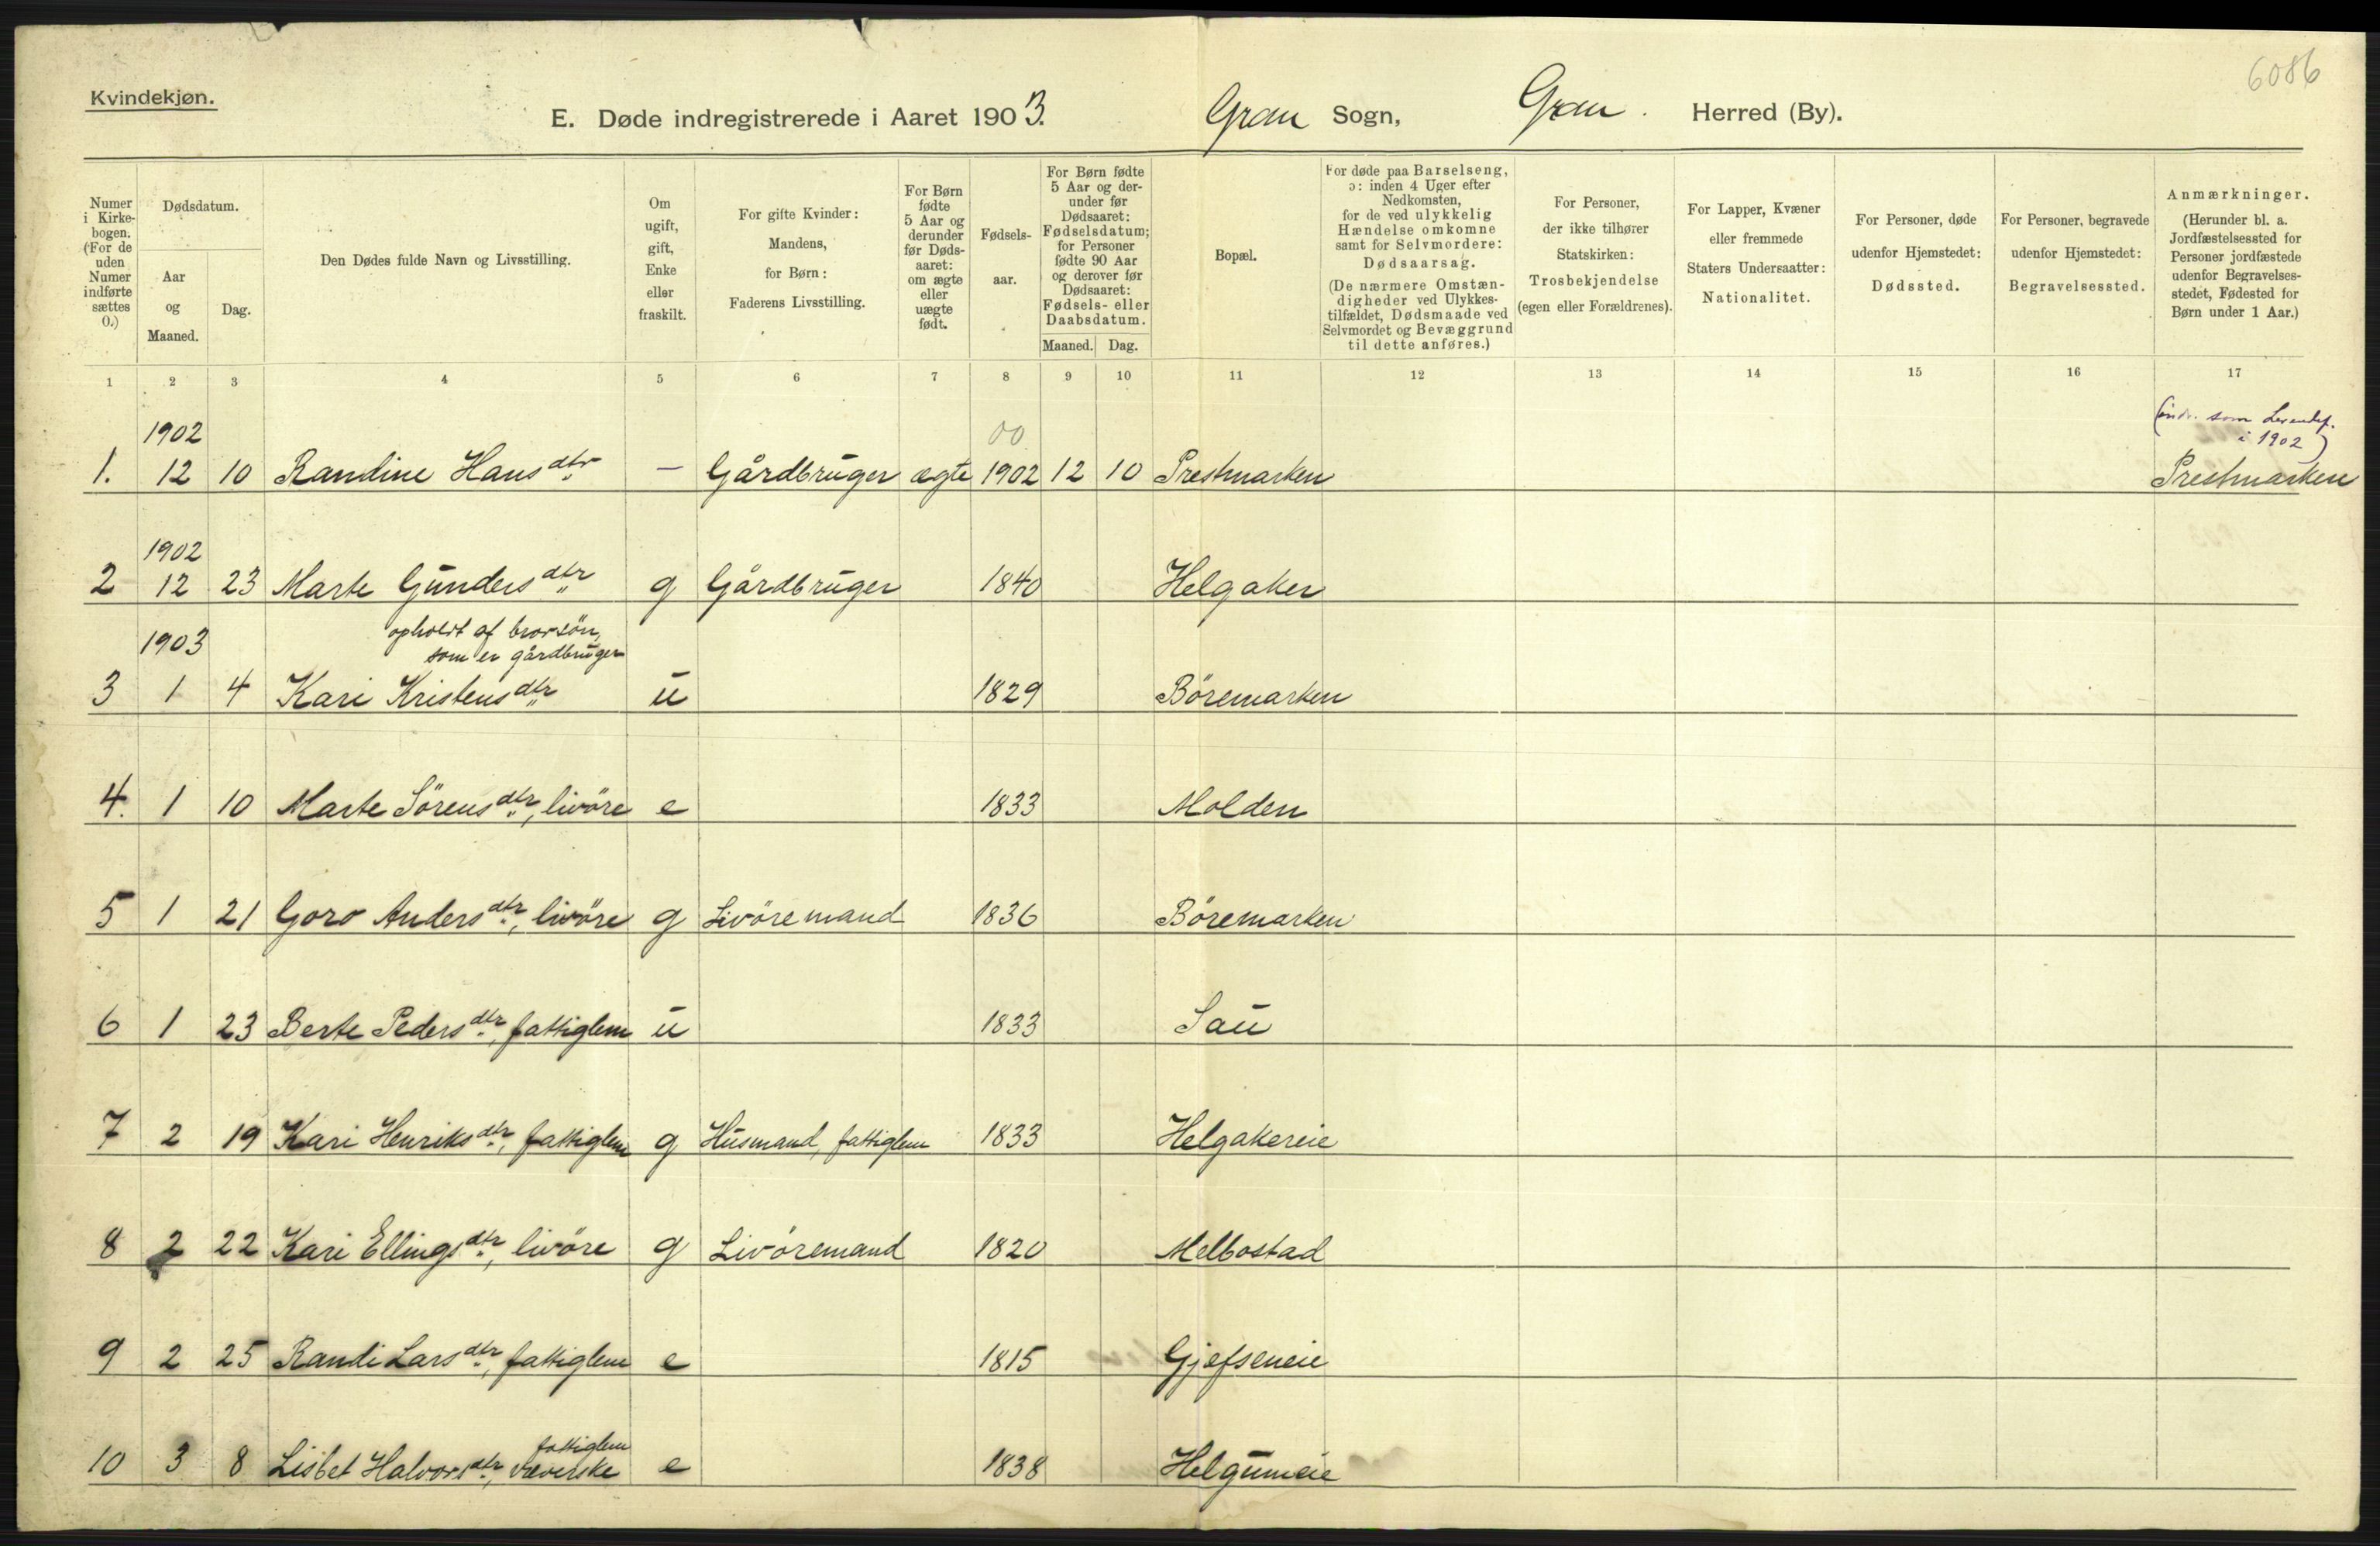 6086
Kvindekjøn.
E. Døde indregistrerede i Aaret 1903. Gran Sogn, Gran. Herred (By).
Numer i Kirke- bogen. (For de uden Numer indførte sættes 0.)
Dødsdatum.
Aar og Maaned.
Dag.
Den Dødes fulde Navn og Livsstilling.
Om ugift, gift, Enke eller fraskilt.
For gifte Kvinder: Mandens, for Børn: Faderens Livsstilling.
For Børn fødte 5 Aar og derunder før Døds- aaret: om ægte eller uægte født.
Fødsels- aar.
For Børn fødte 5 Aar og der- under før Dødsaaret: Fødselsdatum; for Personer fødte 90 Aar og derover før Dødsaaret: Fødsels- eller Daabsdatum.
Maaned. Dag.
Bopæl.
For døde paa Barselseng, ɔ: inden 4 Uger efter Nedkomsten, for de ved ulykkelig Hændelse omkomne samt for Selvmordere: Dødsaarsag. (De nærmere Omstæn- digheder ved Ulykkes- tilfældet, Dødsmaade ved Selvmordet og Bevæggrund til dette anføres.)
For Personer, der ikke tilhører Statskirken: Trosbekjendelse (egen eller Forældrenes).
For Lapper, Kvæner eller fremmede Staters Undersaatter: Nationalitet.
For Personer, døde udenfor Hjemstedet: Dødssted.
For Personer, begravede udenfor Hjemstedet: Begravelsessted.
Anmærkninger. (Herunder bl. a. Jordfæstelsessted for Personer jordfæstede udenfor Begravelses- stedet, Fødested for Børn under 1 Aar.)
1 2 3 4 5 6 7 8 9 10 11 12 13 14 15 16 17
1902 00 (indr. som i 1902)
1. 12 10 Randine Hansdtr. – Gårdbruger ægte 1902 12 10 Prestmarken Prestmarken
1902
2 12 23 Marte Gundersdtr g Gårdbruger 1840 Helgaker
1903 opholdt af brorsön, som er gårdbruger
3 1 4 Kari Kristensdtr u 1829 Böremarken
4. 1 10 Marte Sörensdtr., livöre e 1833 Molden
5 1 21 Goro Andersdtr., livöre g Livöremand 1836 Böremarken
6 1 23 Berte Pedersdtr., fattiglem u 1833 Sau
7 2 19 Kari Henriksdtr., fattiglem g Husmand, fattiglem 1833 Helgakereie
8 2 22 Kari Ellingsdtr., livöre g Livöremand 1820 Melbostad
9 2 25 Randi Larsdtr., fattiglem e 1815 Gjefseneie
fattiglem
10 3 8 Lisbet Halvorsdtr., væverske e 1838 Helgumeie